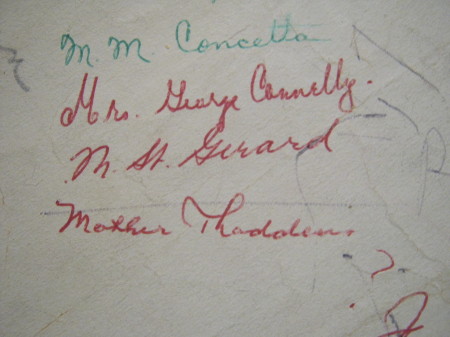 M. M. Concetta
Mrs. George Connelly.
M. St. Gerard
Mother Thaddeus.
?